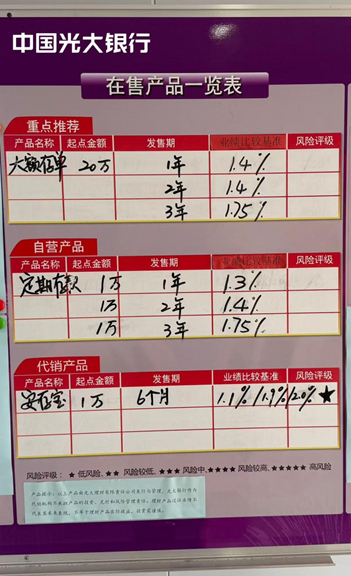 中国光大银行
在售产品一览表
重点推荐
产品名称 起点金额 发售期 业绩比较基准 风险评级
大额存单 20万 1年 1.4%
2年 1.4%
3年 1.75%
自营产品
产品名称 起点金额 发售期 业绩比较基准 风险评级
定期存款 1万 1年 1.3%
1万 2年 1.4%
1万 3年 1.75%
代销产品
产品名称 起点金额 发售期 业绩比较基准 风险评级
安存宝 1万 6个月 1.1%/1.9%/2.0% ★
风险评级：★ 低风险、★★ 风险较低、★★★ 风险中、★★★★ 风险较高、★★★★★ 高风险
产品提示：以上产品由光大理财有限责任公司发行与管理，
代销机构不承担产品的投资、兑付和风险管理责任。